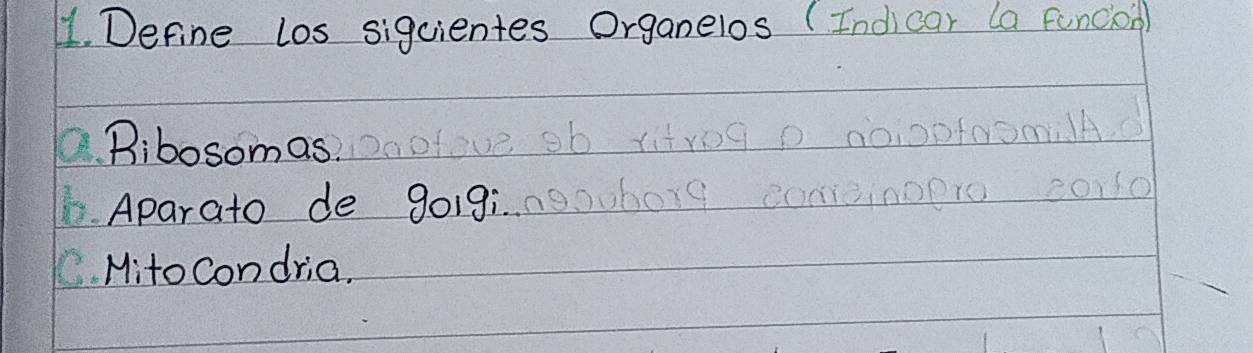 1. Define los siguientes Organelos (Indicar la función)
a. Ribosomas.
b. Aparato de golgi.
C. Mitocondria.